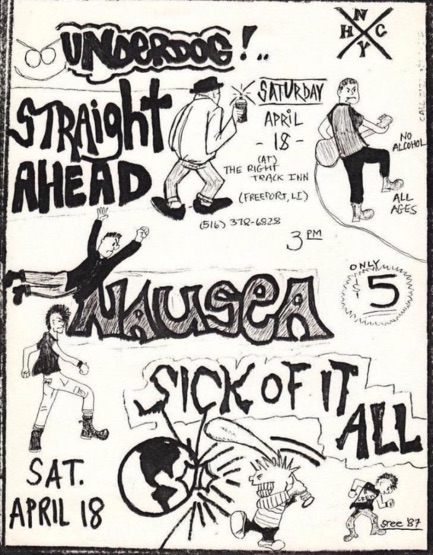 UNDERDOG!..
N
H C
Y
STRAIGHT
AHEAD
SATURDAY
APRIL
- 18 -
(AT)
THE RIGHT
TRACK INN
(FREEPORT, LI)
(516) 378-6828
3 PM
NO
ALCOHOL
ALL
AGES
NAUSEA
ONLY
$5
SICK OF IT
ALL
SAT.
APRIL 18